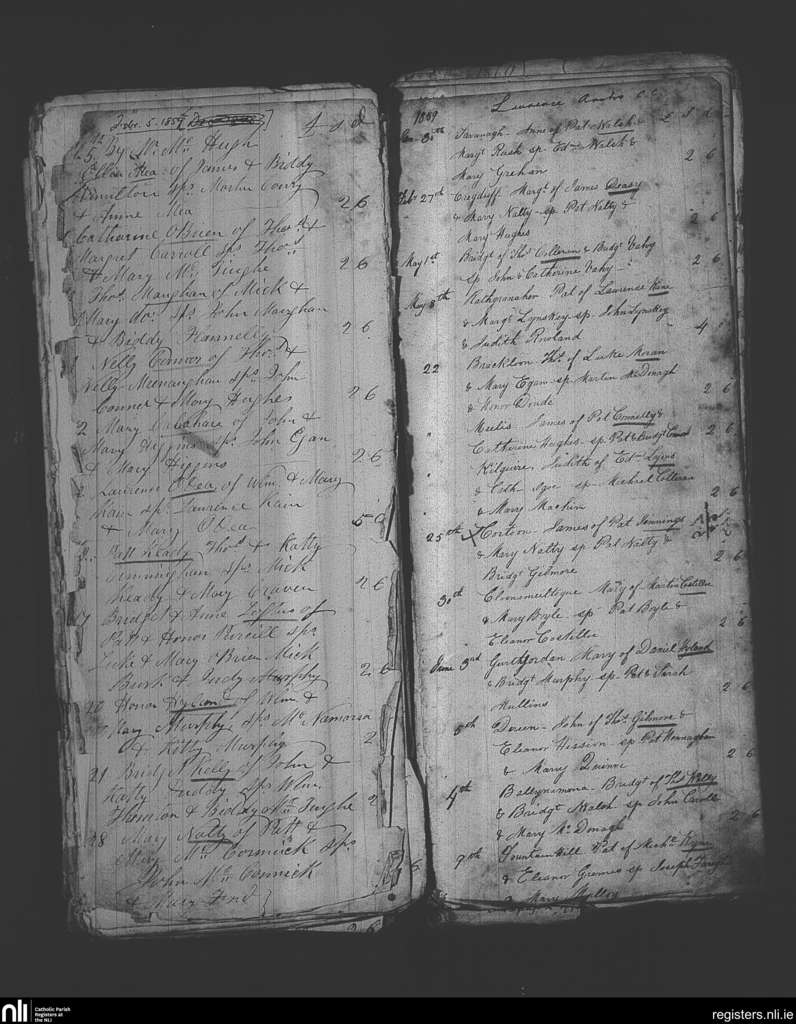 Febr. 5. 1857
£ s d
by Mr. Mc. Hugh
Ellen Hea of James & Biddy
Hamilton sps Martin Conry
& Anne Hea 2 6
Catharine O'Brien of Thos. &
Margret Carroll sps Thos.
& Mary Mc. Tighe 2 6
Thos. Maughan of Mick &
Mary do. sps John Maughan
& Biddy Flannelly 2 6
Nelly Connor of Thos. &
Nelly Meenaughan sps John
Connor & Mary Hughes 2 6
2 Mary of John &
Mary Higgins sps John Egan
& Mary Higgins 2 6
Laurence O'Dea of Wm. & Mary
sps Laurence Kain
& Mary O'Dea 5 0
Patt Leady Thos. & Katty
Cunningham sps Mick
Leady & Mary Craven 2 6
17 Bridget & Anne Loftus of
Patt & Honor Purcill sps
Luke & Mary O'Brien Mick
Burk & Judy Murphy 2 6
20 Honor of Wm. &
Mary Murphy sps Mc. Namarra
& Kitty Murphy 2
21 Bridget Kelly of John &
Katty Freddy sps Wm.
Thomson & Biddy Mc. Tighe 2
28 Mary Nally of Patt &
Mary Mc. Cormick sps
John Mc. Cormick
& Mary
Lawrence C.C.
1859
30th Cavanagh - Anne of Pat Walsh & £ S d
Margt. Rush sp Edm. Walsh &
Mary Grehan 2 6
Feb. 27th Cregduff. Margt. of James Deasy
& Mary Natty - sp Pat Natty &
Mary Hughes 2 6
May 1st Bridgt. of Thos. Colleran & Bridgt. Vahy
sp John & Catherine Vahy 2 6
May 8th Rathgranaher Pat of Lawrence Kine
& Margt. Lynskey - sp. John Lynskey
& Judith Rowland 4
22 Brackloon Thos. of Luke Moran
& Mary Egan - sp Martin McDonagh
& Honor Donde 2 6
" Meelis - James of Pat Connelly &
Catherine Hughes - sp. Pat & Bridgt 2 6
" Kilquire. Judith of Edm. Lyons
& Cath. - sp - Michael Colleran
& Mary Machin 2 6
25th Cortoon - James of Pat Jennings
& Mary Natty sp Pat Natty &
Bridgt. Gilmore 2 6
30th Cloonsmeeltogue Mary of Martin Costelloe
& Mary Boyle - sp Pat Boyle &
Eleanor Costelloe 2 6
June 3rd Gurthjordan Mary of Daniel
& Bridgt Murphy - sp - Pat & Sarah
Mullins 2 6
5th Doreen - John of Thos. Gilmore &
Eleanor Hession - sp Pat Monnaghan
& Mary Quinne 2 6
4th Ballynamona - Bridgt of Thos.
& Bridgt. Walsh sp John Caroll
& Mary McDonagh 2 6
9th Fountain Hill Pat of Michl.
& Eleanor Greanes sp Joseph
& Mary Molloy
nli
Catholic Parish
Registers at
the NLI
registers.nli.ie